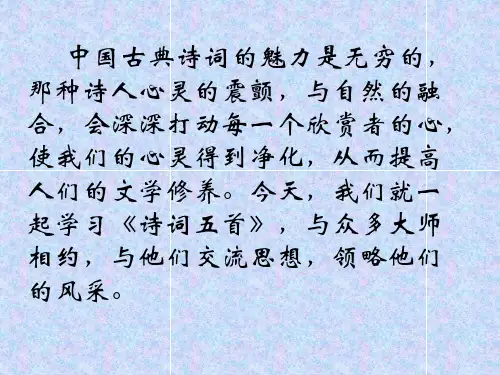 中国古典诗词的魅力是无穷的，
那种诗人心灵的震颤，与自然的融
合，会深深打动每一个欣赏者的心，
使我们的心灵得到净化，从而提高
人们的文学修养。今天，我们就一
起学习《诗词五首》，与众多大师
相约，与他们交流思想，领略他们
的风采。